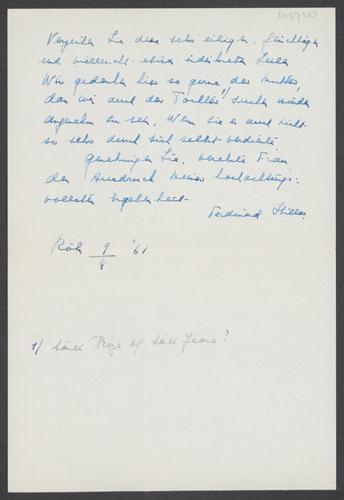 D:5742
Verzeihen Sie diese sehr eiligen, flüchtigen
und vielleicht etwas indiskreten Zeilen
Wir gedenken hier so gerne der Mutter,
dass wir auch der Tochter 1) suchen würden
angenehm zu sein, wenn sie es auch nicht
so sehr durch sich selbst verdiente
genehmigen Sie, verehrte Frau
den Ausdruck meiner hochachtungs=
vollsten Ergebenheit
Ferdinand Hiller
Köln 9/4 '61
1)